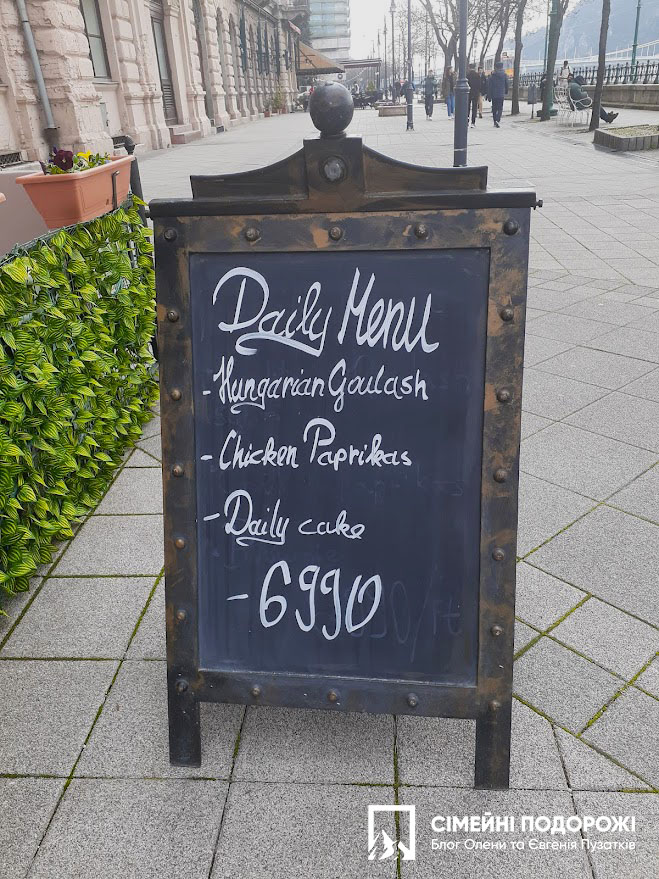 Daily Menu
- Hungarian Goulash
- Chicken Paprikas
- Daily cake
- 6990
СІМЕЙНІ ПОДОРОЖІ
Блог Олени та Євгенія Пузатків